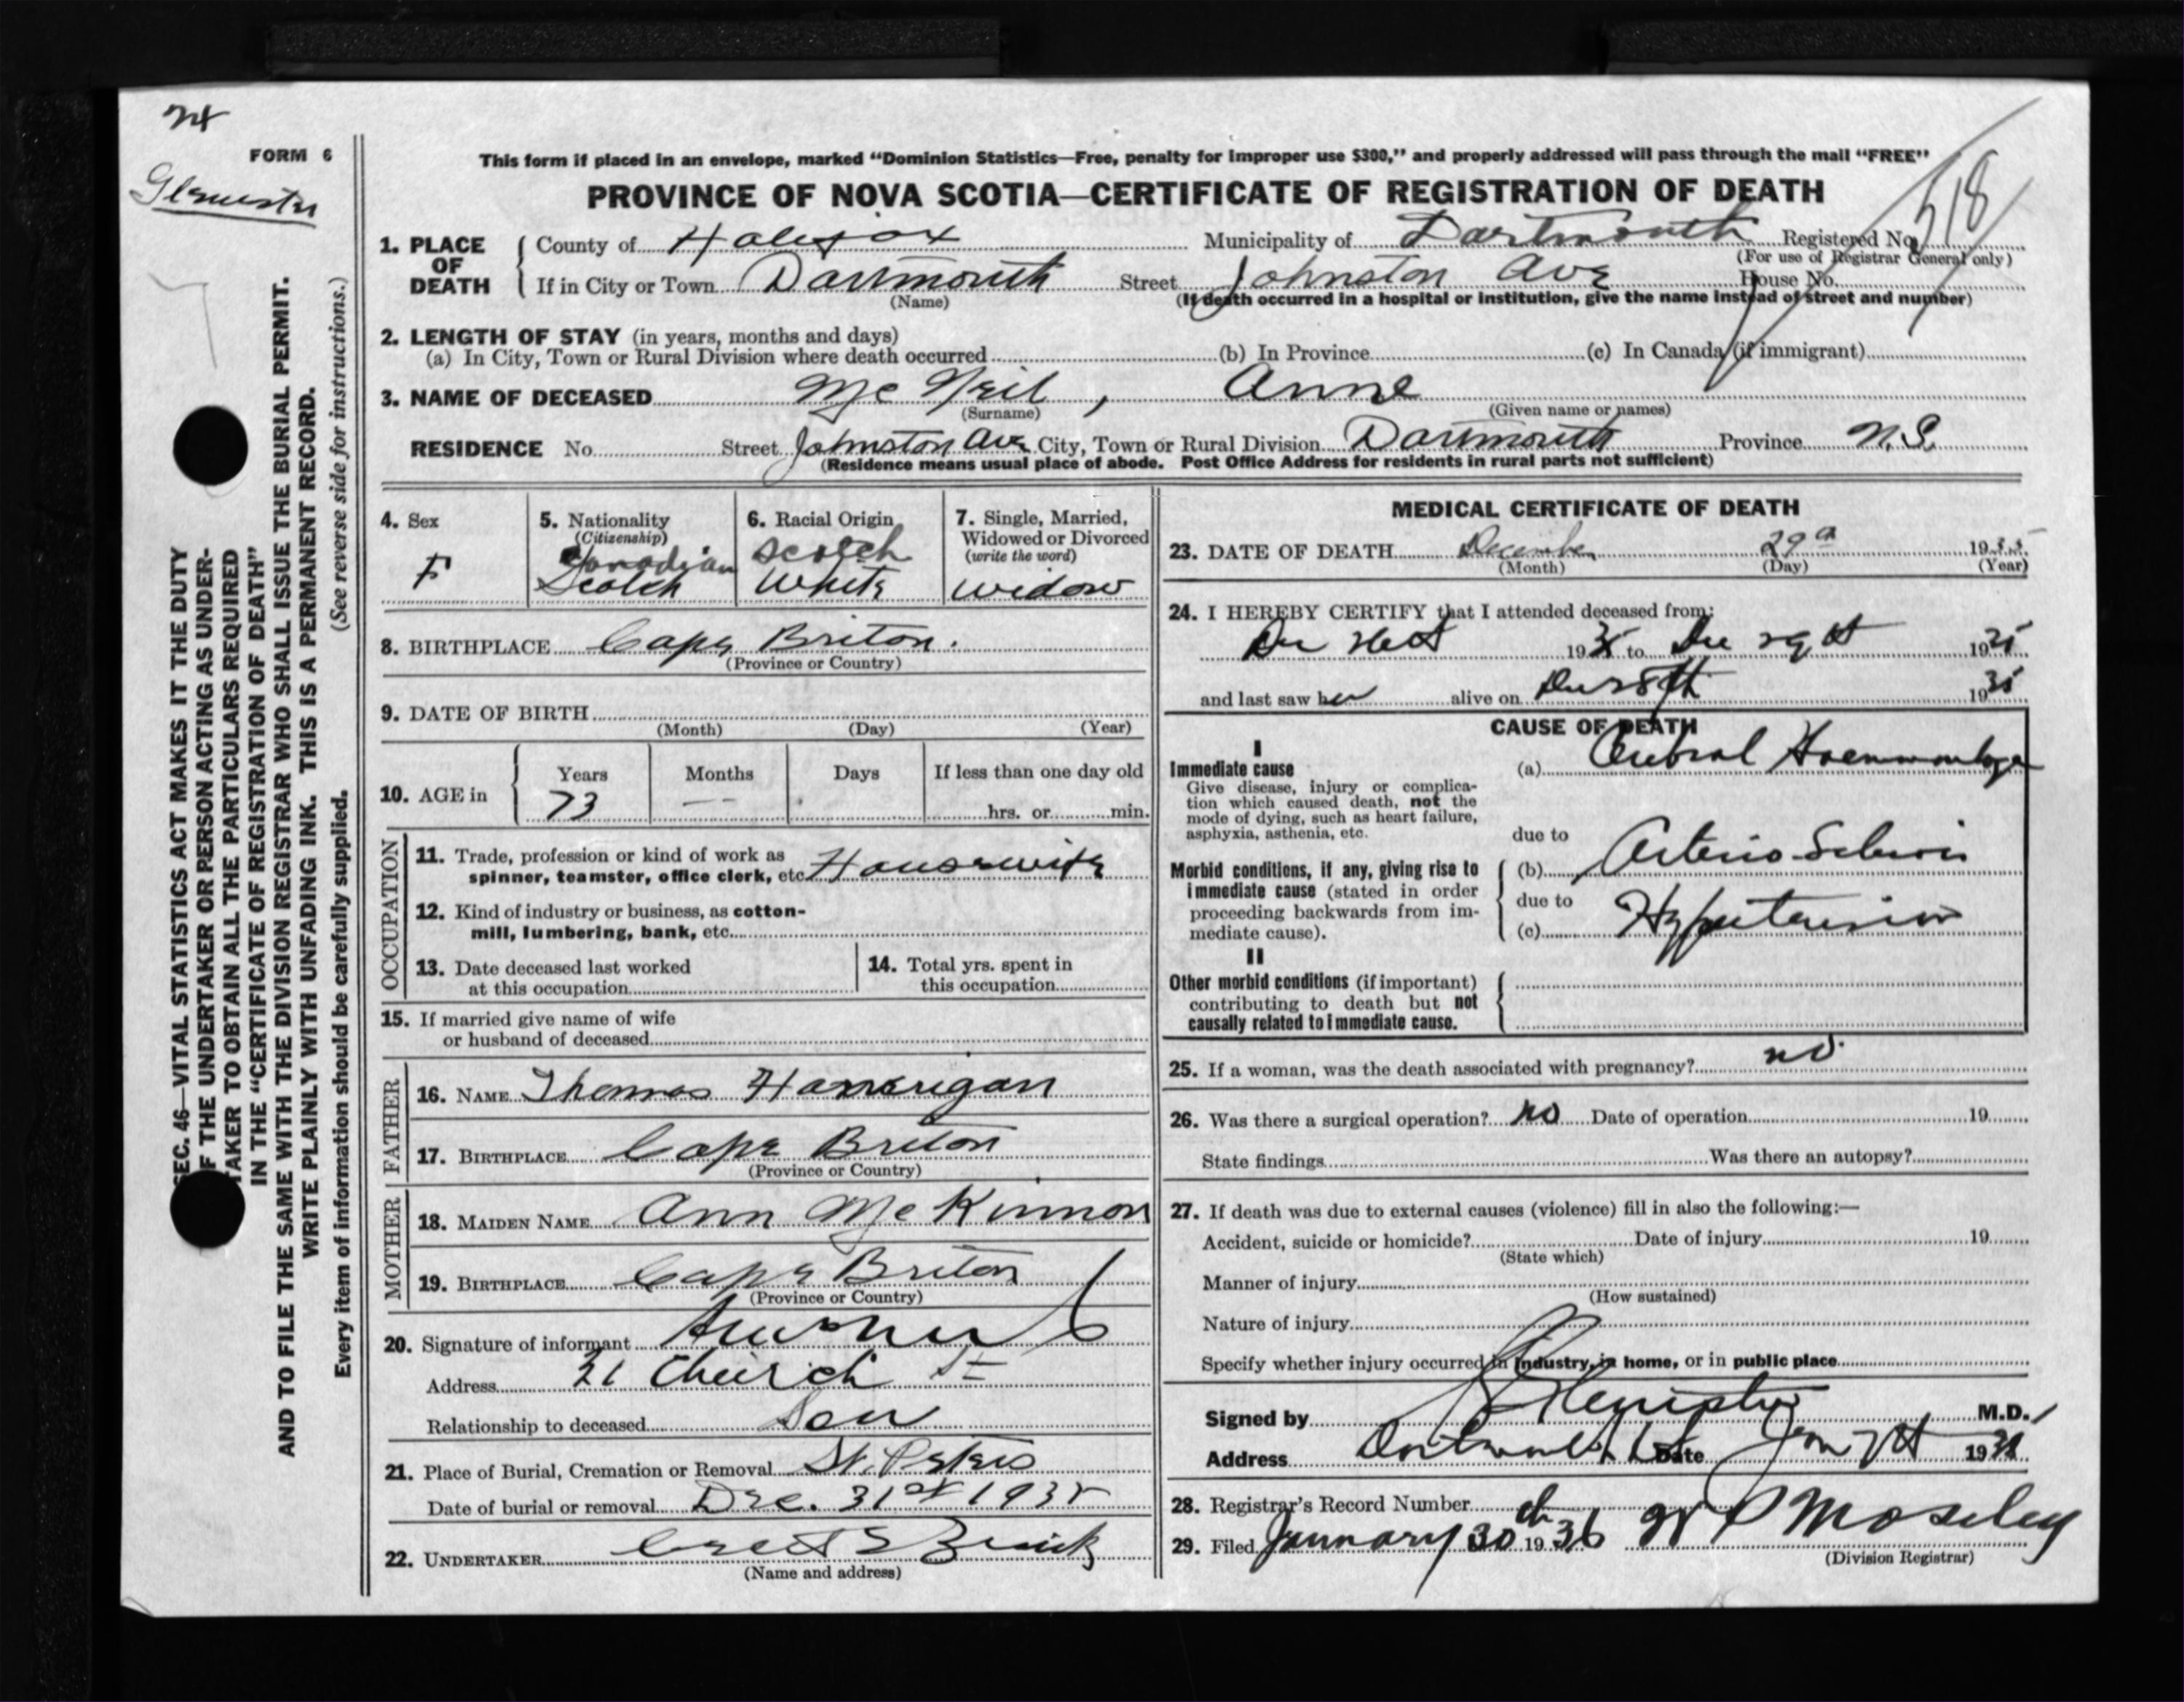 24
FORM 6
This form if placed in an envelope, marked “Dominion Statistics—Free, penalty for improper use $300,” and properly addressed will pass through the mail “FREE”
PROVINCE OF NOVA SCOTIA—CERTIFICATE OF REGISTRATION OF DEATH
518
1. PLACE OF DEATH
County of Halifax Municipality of Dartmouth Registered No.
(For use of Registrar General only)
If in City or Town Dartmouth Street Johnston Ave House No.
(Name) (If death occurred in a hospital or institution, give the name instead of street and number)
2. LENGTH OF STAY (in years, months and days)
(a) In City, Town or Rural Division where death occurred (b) In Province (c) In Canada (if immigrant)
3. NAME OF DECEASED Mc Neil, Anne
(Surname) (Given name or names)
RESIDENCE No. Street Johnston Ave City, Town or Rural Division Dartmouth Province N.S.
(Residence means usual place of abode. Post Office Address for residents in rural parts not sufficient)
SEC. 46—VITAL STATISTICS ACT MAKES IT THE DUTY
OF THE UNDERTAKER OR PERSON ACTING AS UNDER-
TAKER TO OBTAIN ALL THE PARTICULARS REQUIRED
IN THE “CERTIFICATE OF REGISTRATION OF DEATH”
AND TO FILE THE SAME WITH THE DIVISION REGISTRAR WHO SHALL ISSUE THE BURIAL PERMIT.
WRITE PLAINLY WITH UNFADING INK. THIS IS A PERMANENT RECORD.
Every item of information should be carefully supplied. (See reverse side for instructions.)
4. Sex
F
5. Nationality
(Citizenship)
Canadian
Scotch
6. Racial Origin
Scotch
White
7. Single, Married,
Widowed or Divorced
(write the word)
Widow
8. BIRTHPLACE Cape Briton.
(Province or Country)
9. DATE OF BIRTH
(Month) (Day) (Year)
10. AGE in
Years Months Days If less than one day old
73 — hrs. or min.
OCCUPATION
11. Trade, profession or kind of work as
spinner, teamster, office clerk, etc. Housewife
12. Kind of industry or business, as cotton-
mill, lumbering, bank, etc.
13. Date deceased last worked
at this occupation
14. Total yrs. spent in
this occupation
15. If married give name of wife
or husband of deceased
FATHER
16. NAME Thomas
17. BIRTHPLACE Cape Briton
(Province or Country)
MOTHER
18. MAIDEN NAME Ann Mc Kinnon
19. BIRTHPLACE Cape Briton
(Province or Country)
20. Signature of informant
Address 21 Church St
Relationship to deceased Son
21. Place of Burial, Cremation or Removal St. Peters
Date of burial or removal Dec. 31st 1935
22. UNDERTAKER
(Name and address)
MEDICAL CERTIFICATE OF DEATH
23. DATE OF DEATH December 29th 1935
(Month) (Day) (Year)
24. I HEREBY CERTIFY that I attended deceased from:
Dec 1935 to Dec 29th 1935
and last saw her alive on Dec 28th 1935
CAUSE OF DEATH
I
Immediate cause
Give disease, injury or complica-
tion which caused death, not the
mode of dying, such as heart failure,
asphyxia, asthenia, etc.
(a) Cerebral Haemorrhage
due to
Morbid conditions, if any, giving rise to
immediate cause (stated in order
proceeding backwards from im-
mediate cause).
(b) Arterio-Sclerosis
due to
(c) Hypertension
II
Other morbid conditions (if important)
contributing to death but not
causally related to immediate cause.
25. If a woman, was the death associated with pregnancy? no.
26. Was there a surgical operation? no Date of operation 19
State findings Was there an autopsy?
27. If death was due to external causes (violence) fill in also the following:—
Accident, suicide or homicide? Date of injury 19
(State which)
Manner of injury
(How sustained)
Nature of injury
Specify whether injury occurred in industry, in home, or in public place
Signed by M.D.
Address Dartmouth Date Jan 7th 1936
28. Registrar's Record Number
29. Filed January 30th 1936 Moseley
(Division Registrar)